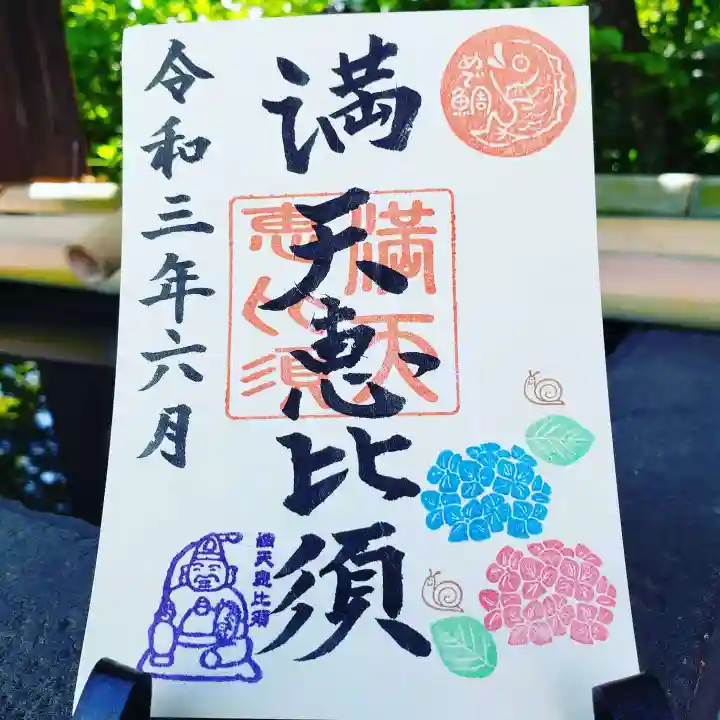 めで鯛
満天恵比須
満天
恵比須
令和三年六月
満天恵比須